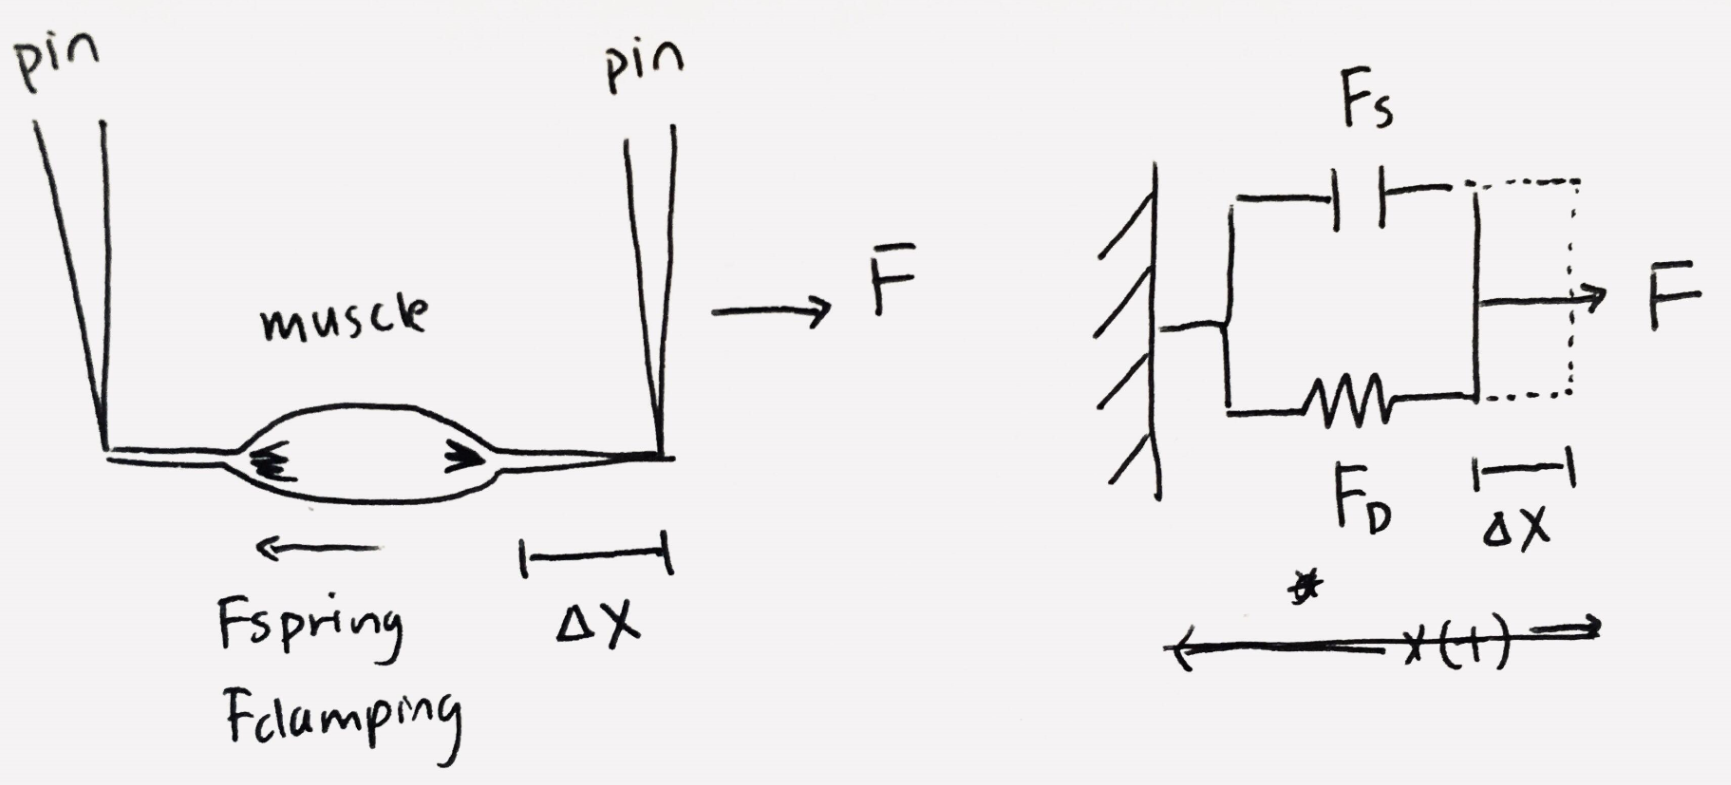 pin
pin
muscle
F
Fspring
Fclamping
ΔX
Fs
F
FD
ΔX
x(t)